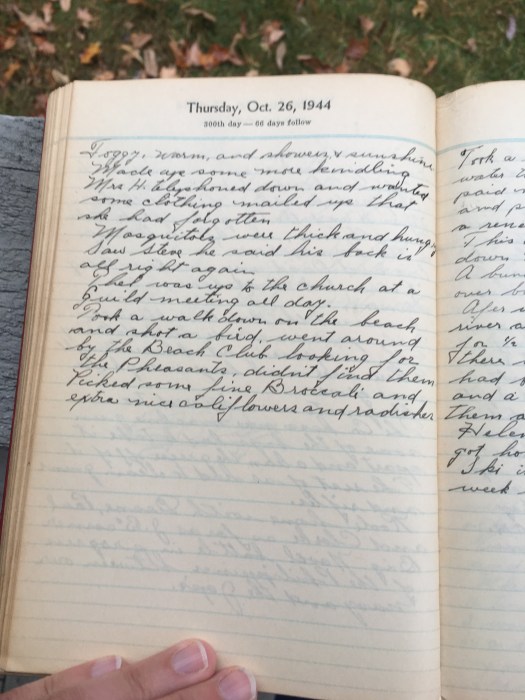 Thursday, Oct. 26, 1944
300th day — 66 days follow
Foggy, warm, and showers & sunshine
Made up some more kindling
Mrs H. telephoned down and wanted
some clothing mailed up that
she had forgotten
Mosquitoes were thick and hungry
Saw Steve he said his back is
all right again
Ethel was up to the church at a
guild meeting all day.
Took a walk down on the beach
and shot a bird, went around
by the Beach Club looking for
the Pheasants, didn't find them
Picked some fine Broccali and
extra nice califlowers and radishes
Took a
water
paid
and
a
This
down
A bun
over
After
river a
for 1/2
there
had
and a
them a
Helen
got ho
Ski i
week